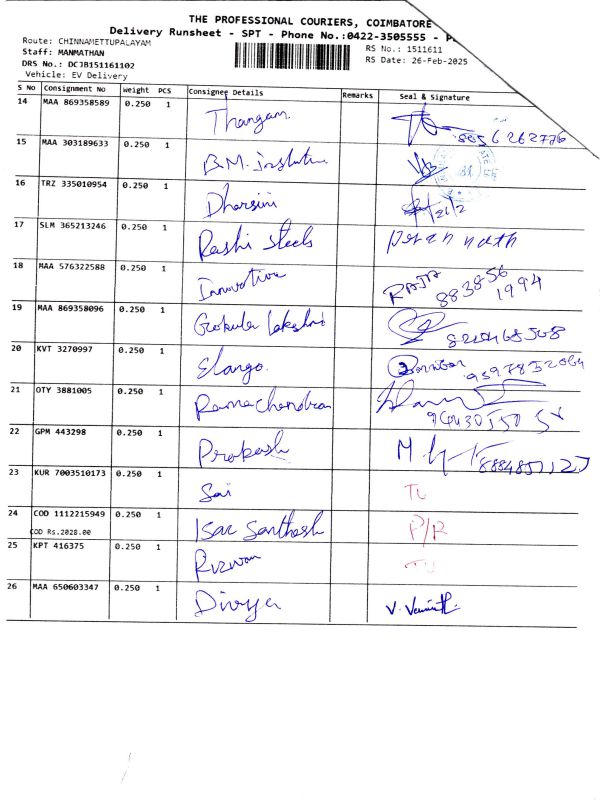 THE PROFESSIONAL COURIERS, COIMBATORE
Delivery Runsheet - SPT - Phone No.:0422-3505555 -
Route: CHINNAMETTUPALAYAM
Staff: MANMATHAN
DRS No.: DCJB151161102
Vehicle: EV Delivery
RS No.: 1511611
RS Date: 26-Feb-2025
S No Consignment No Weight PCS Consignee Details Remarks Seal & Signature
14 MAA 869358589 0.250 1 Thangam
15 MAA 303189633 0.250 1 B.M.
16 TRZ 335010954 0.250 1 Dharsini
17 SLM 365213246 0.250 1 Rashi Steels
18 MAA 576322588 0.250 1 Innovative RAJA
883856
1994
19 MAA 869358096 0.250 1 Gokula Lakshmi
20 KVT 3270997 0.250 1 Elango.
21 OTY 3881005 0.250 1 Ramachandran
22 GPM 443298 0.250 1 Prakash
23 KUR 7003510173 0.250 1 Sai
24 COD 1112215949 0.250 1 Isac Santhosh P/R
COD Rs.2028.00
25 KPT 416375 0.250 1 Rizwan
26 MAA 650603347 0.250 1 Divya